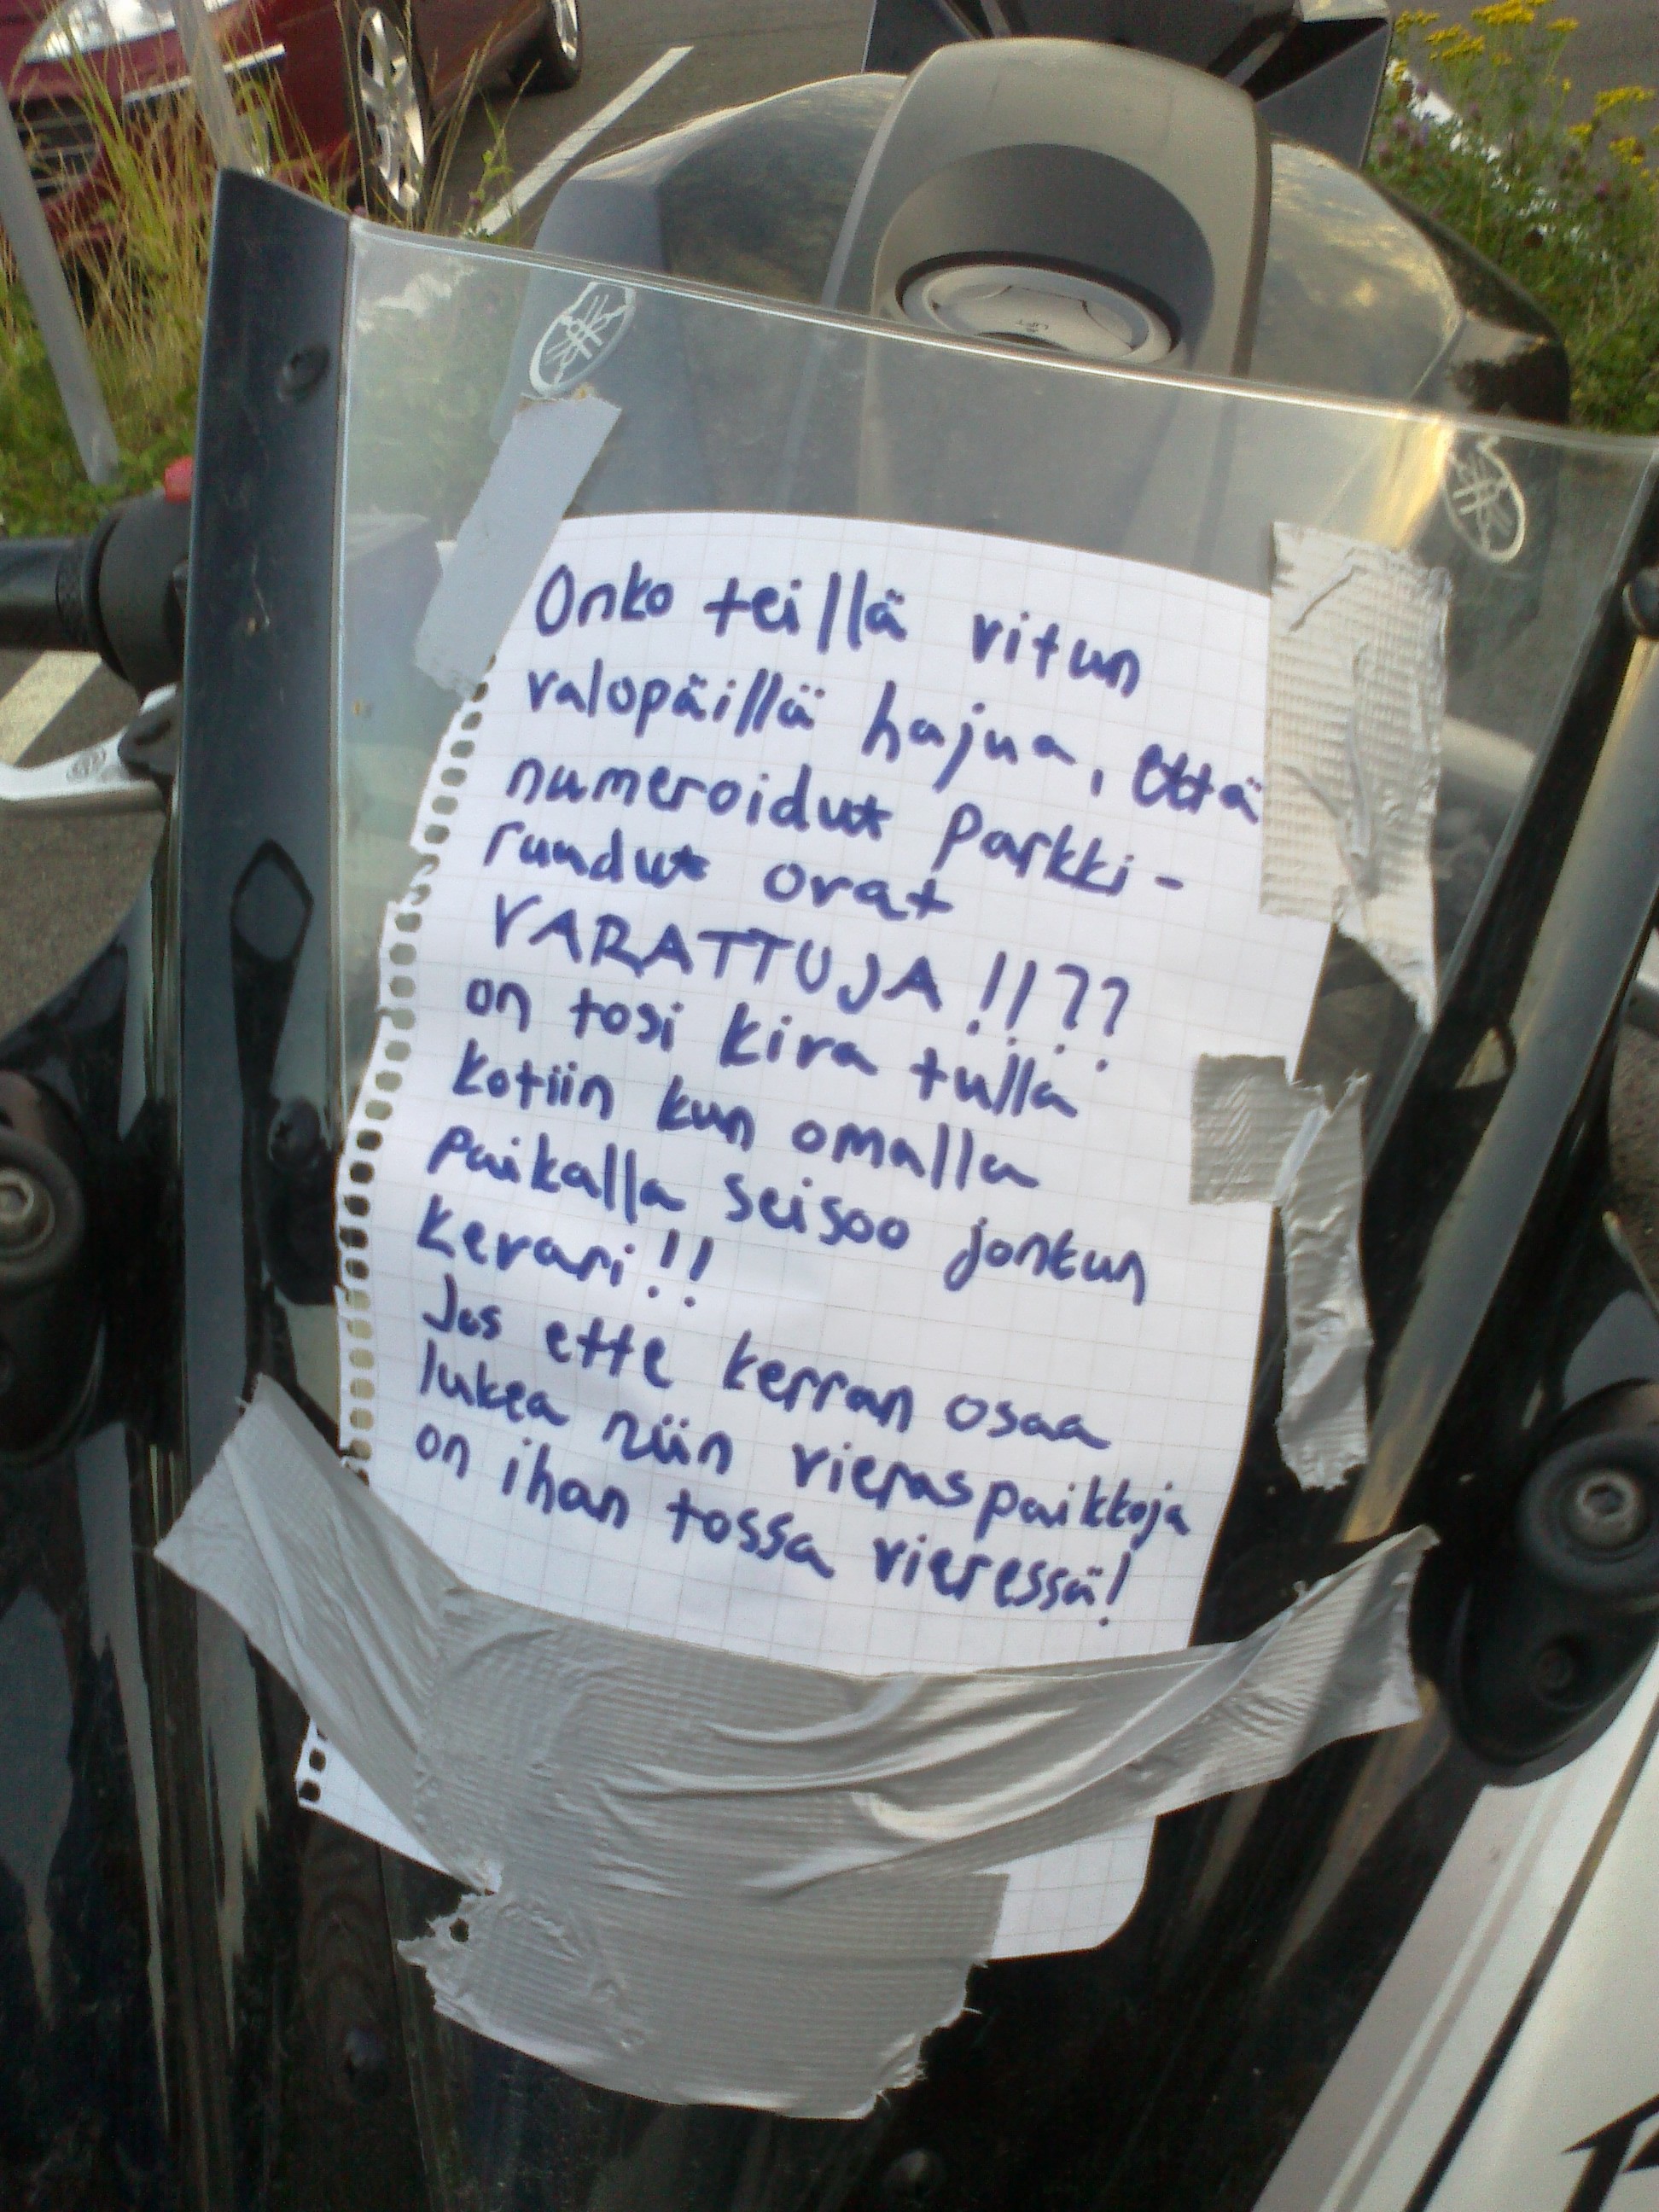 Onko teillä vitun
valopäillä hajua, että
numeroidut parkki-
ruudut ovat
VARATTUJA!!??
on tosi kiva tulla
kotiin kun omalla
paikalla seisoo jonkun
kevari!!
Jos ette kerran osaa
lukea niin vieraspaikkoja
on ihan tossa vieressä!